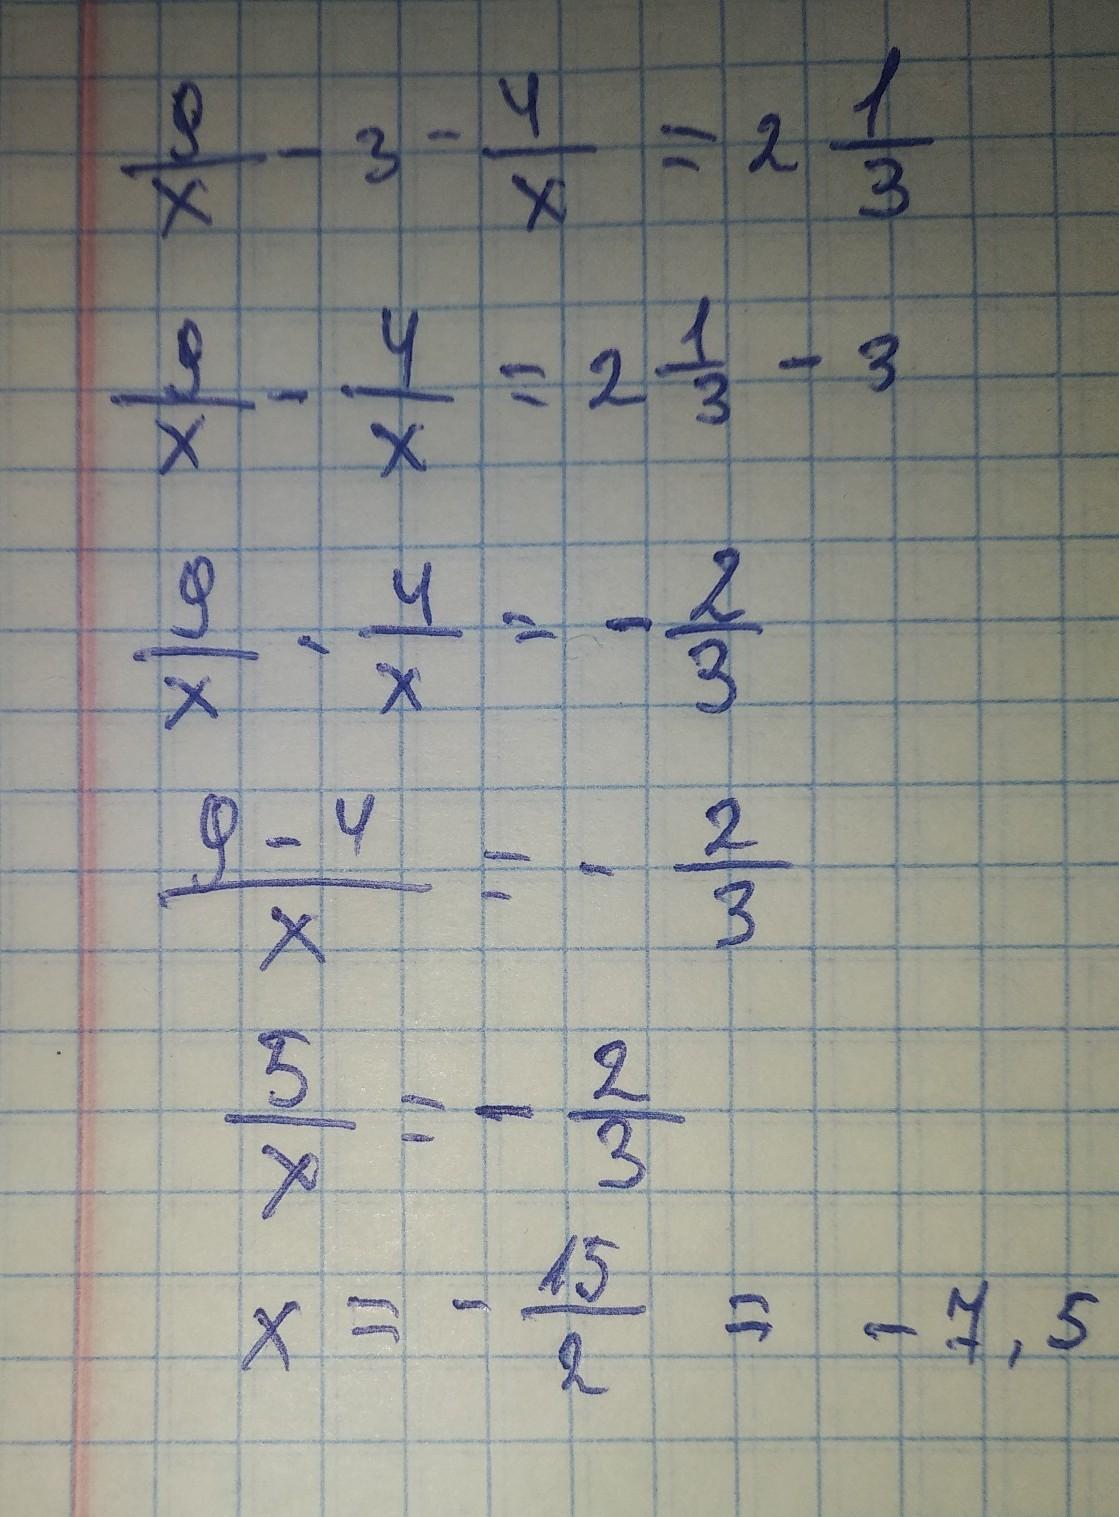 9/x - 3 - 4/x = 2 1/3
9/x - 4/x = 2 1/3 - 3
9/x - 4/x = - 2/3
(9 - 4)/x = - 2/3
5/x = - 2/3
x = - 15/2 = - 7,5